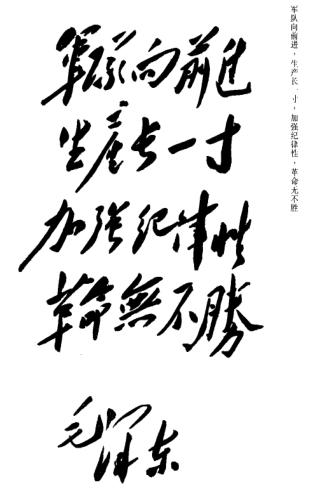 軍队向前進
生產长一寸
加強纪律性
革命無不勝
毛泽东
军队向前进，生产长一寸，加强纪律性，革命无不胜